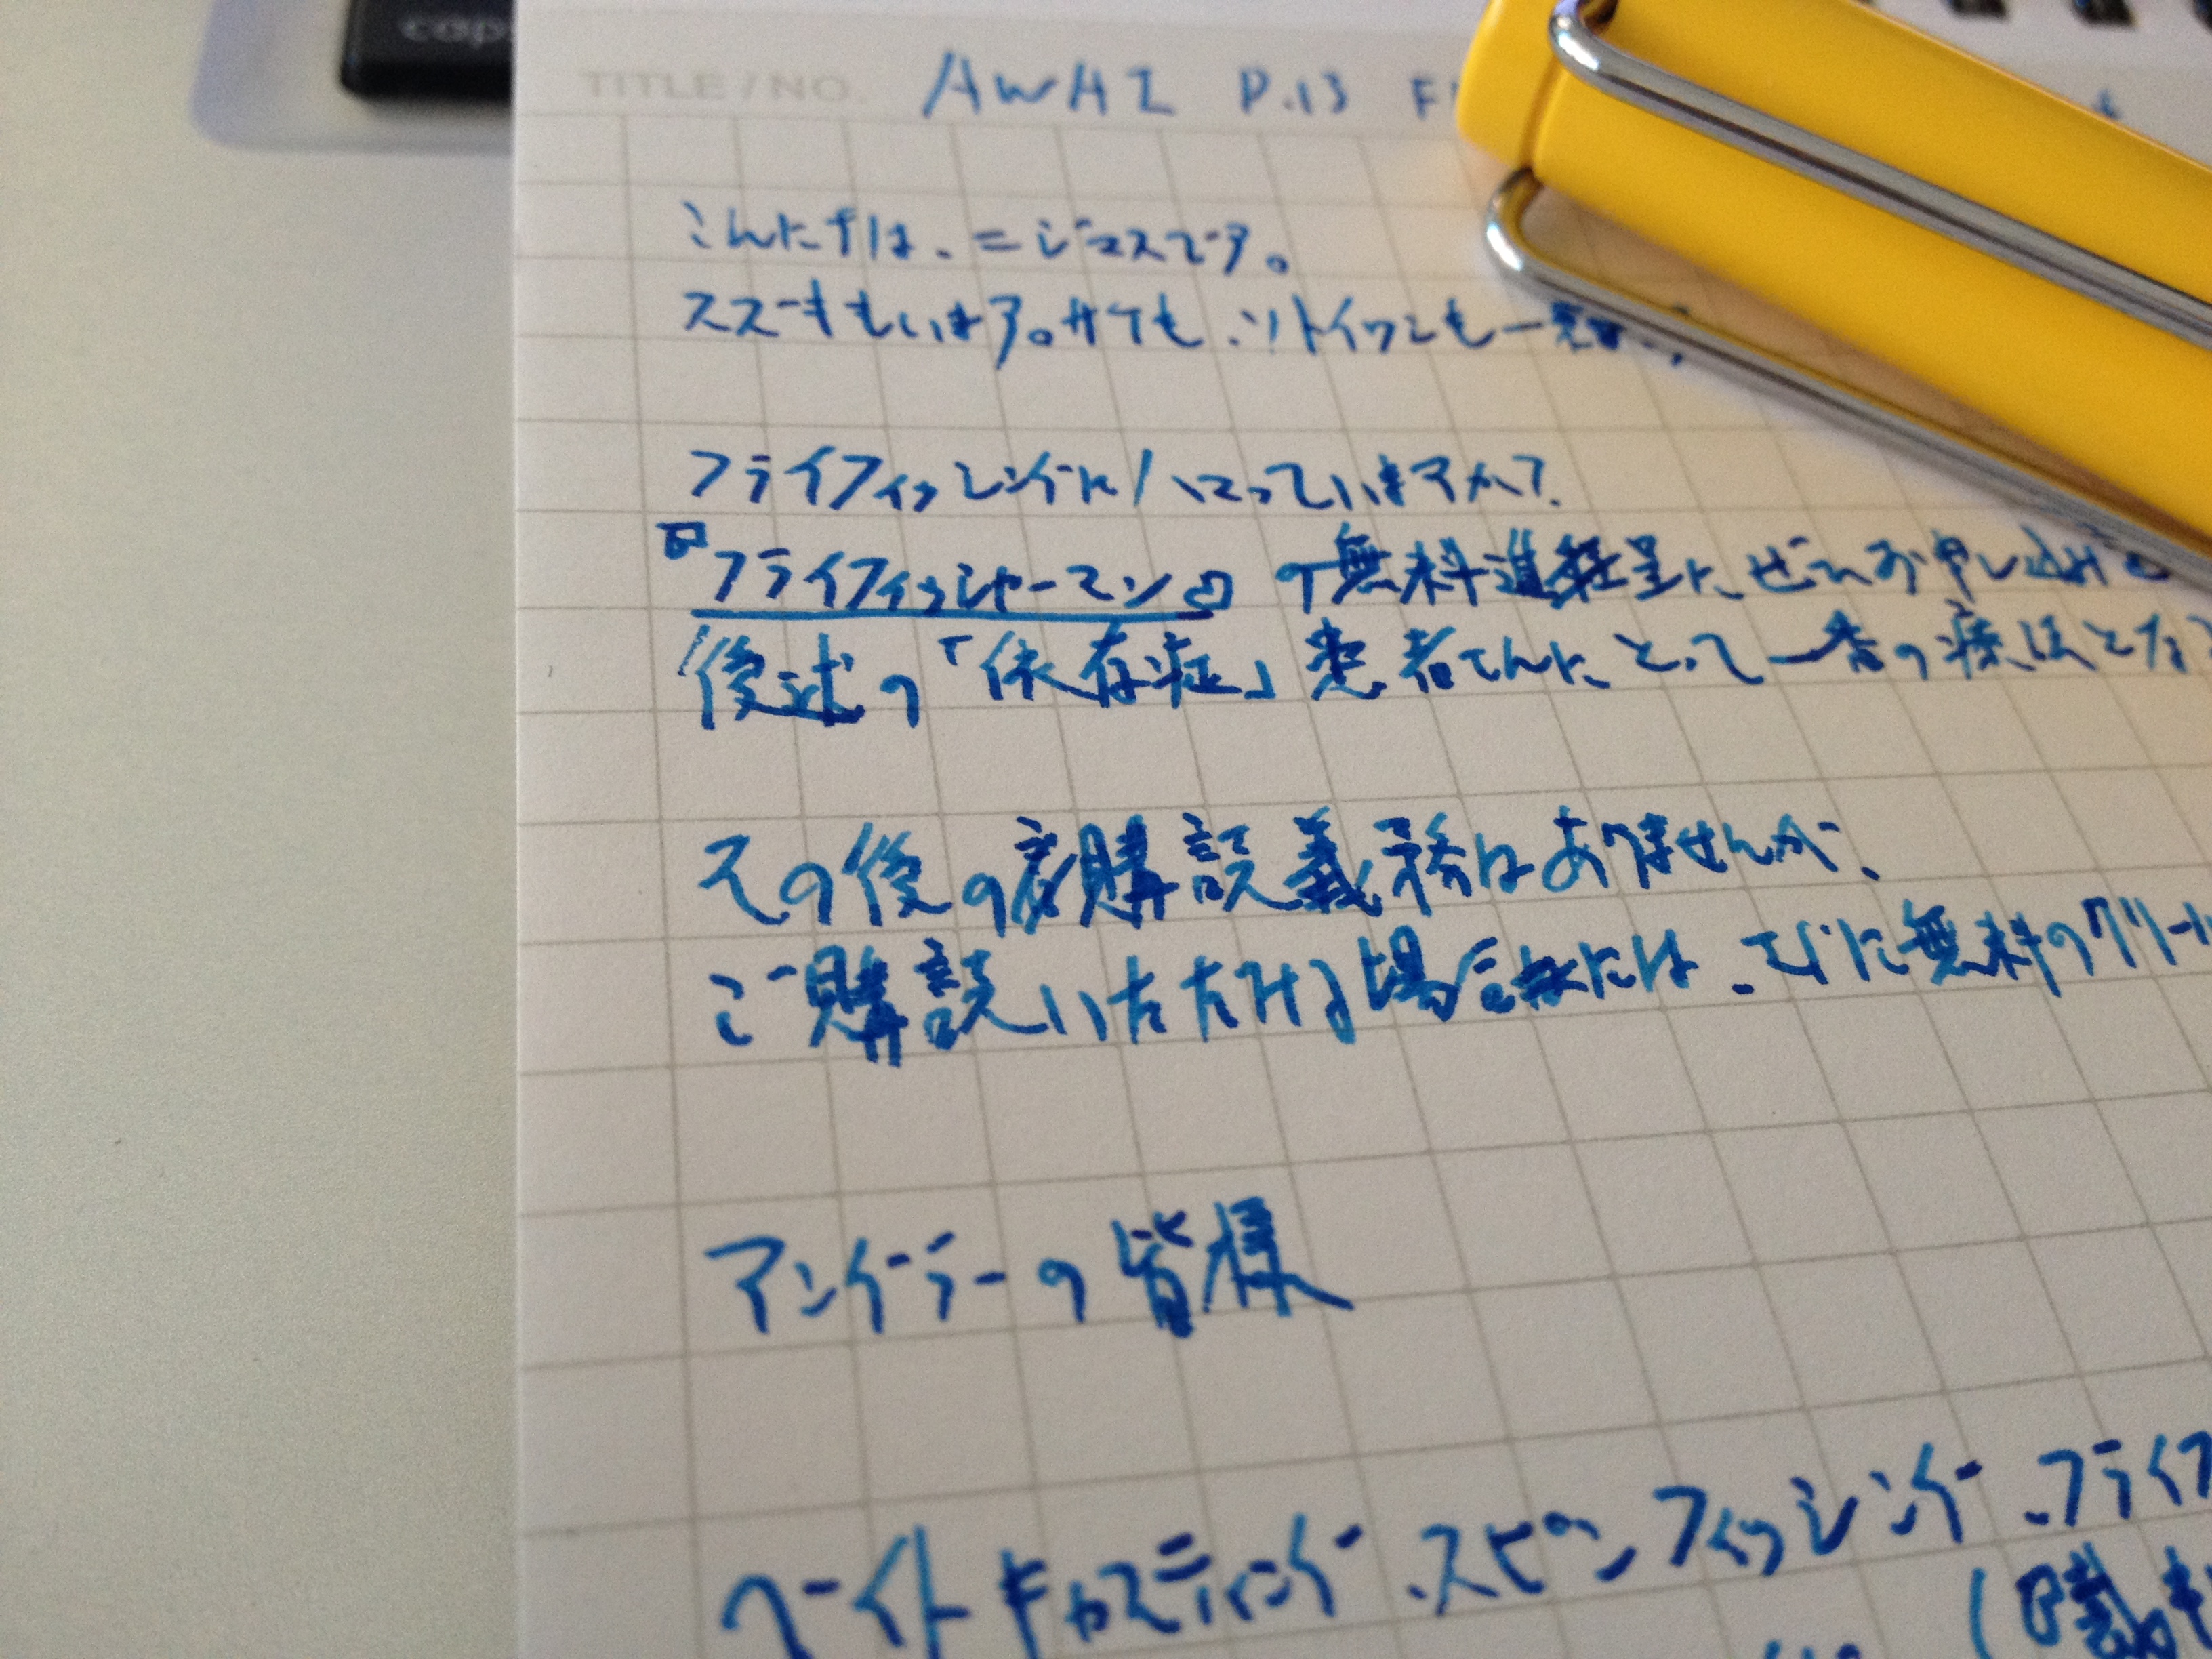 cap
TITLE / NO. AWAI P.13 F
こんにちは、ニジマスです。
スズキもいます。サケも、ソトイワシも一
フライフィッシングにハマっていますか?
『フライフィッシャーマン』の無料進呈に、ぜひお申し込み
後述の「依存症」患者さんにとって一番の療法とな
その後の購読義務はありませんが、
ご購読いただける場合には、すぐに無料のクリー
アングラーの皆様
ベイトキャスティング、スピンフィッシング、フライフ